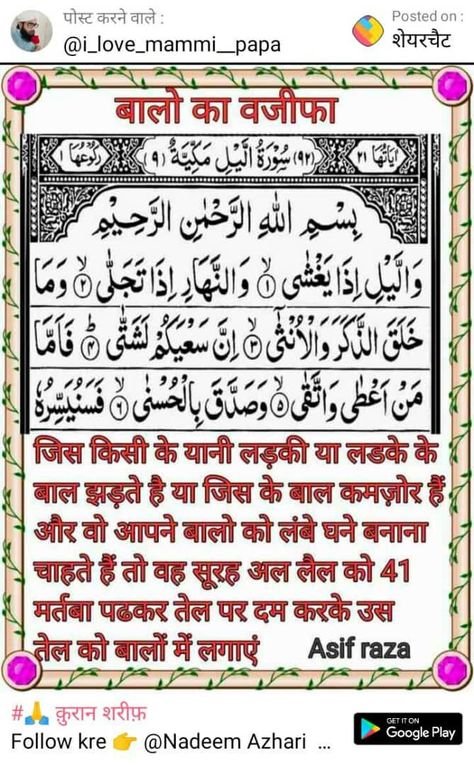 पोस्ट करने वाले :
@i_love_mammi__papa
Posted on :
शेयरचैट
बालो का वजीफा
اٰیَاتُهَا ٢١ (٩٢) سُوْرَةُ الَّیْلِ مَکِّیَّةٌ (٩) رُکُوْعُهَا ١
بِسْمِ اللهِ الرَّحْمٰنِ الرَّحِیْمِ
وَالَّیْلِ اِذَا یَغْشٰی ۙ١ وَ النَّهَارِ اِذَا تَجَلّٰی ۙ٢ وَمَا
خَلَقَ الذَّکَرَ وَالْاُنْثٰۤی ۙ٣ اِنَّ سَعْیَکُمْ لَشَتّٰی ؕ٤ فَاَمَّا
مَنْ اَعْطٰی وَاتَّقٰی ۙ٥ وَصَدَّقَ بِالْحُسْنٰی ۙ٦ فَسَنُیَسِّرُهٗ
जिस किसी के यानी लड़की या लडके के
बाल झड़ते है या जिस के बाल कमज़ोर हैं
और वो आपने बालो को लंबे घने बनाना
चाहते हैं तो वह सूरह अल लैल को 41
मर्तबा पढकर तेल पर दम करके उस
तेल को बालों में लगाएं Asif raza
#🙏 क़ुरान शरीफ़
Follow kre 👉 @Nadeem Azhari ...
GET IT ON
Google Play